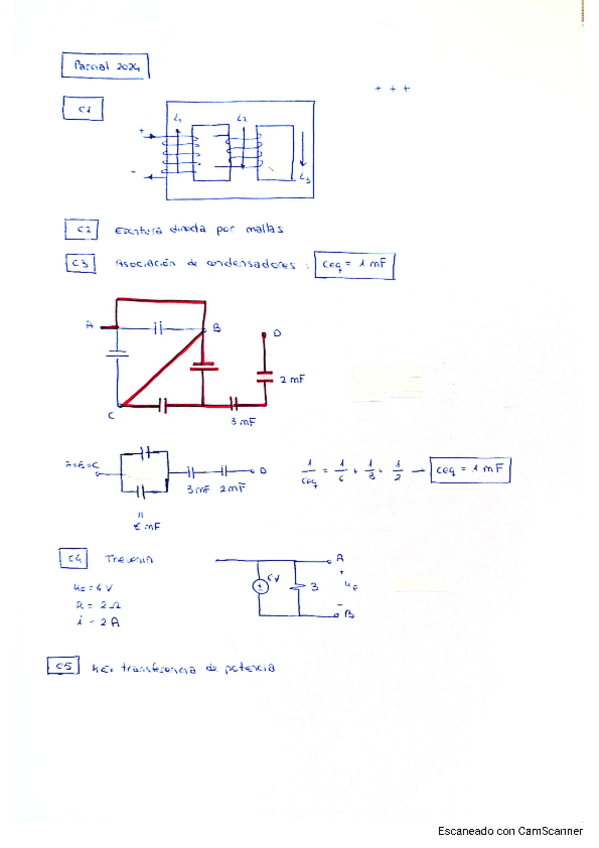 Parcial 2024
+ + +
C1
L1 L2
+
-
L3
C2 Escritura directa por mallas
C3 Asociación de condensadores : Ceq = 1 mF
A B D
2 mF
C 3 mF
A=B=C D
3 mF 2 mF
1/Ceq = 1/6 + 1/3 + 1/2 → Ceq = 1 mF
=
6 mF
C4 Thevenin
A
+
3
-
B
R = 2 Ω
i = 2 A
C5 transferencia de potencia
Escaneado con CamScanner